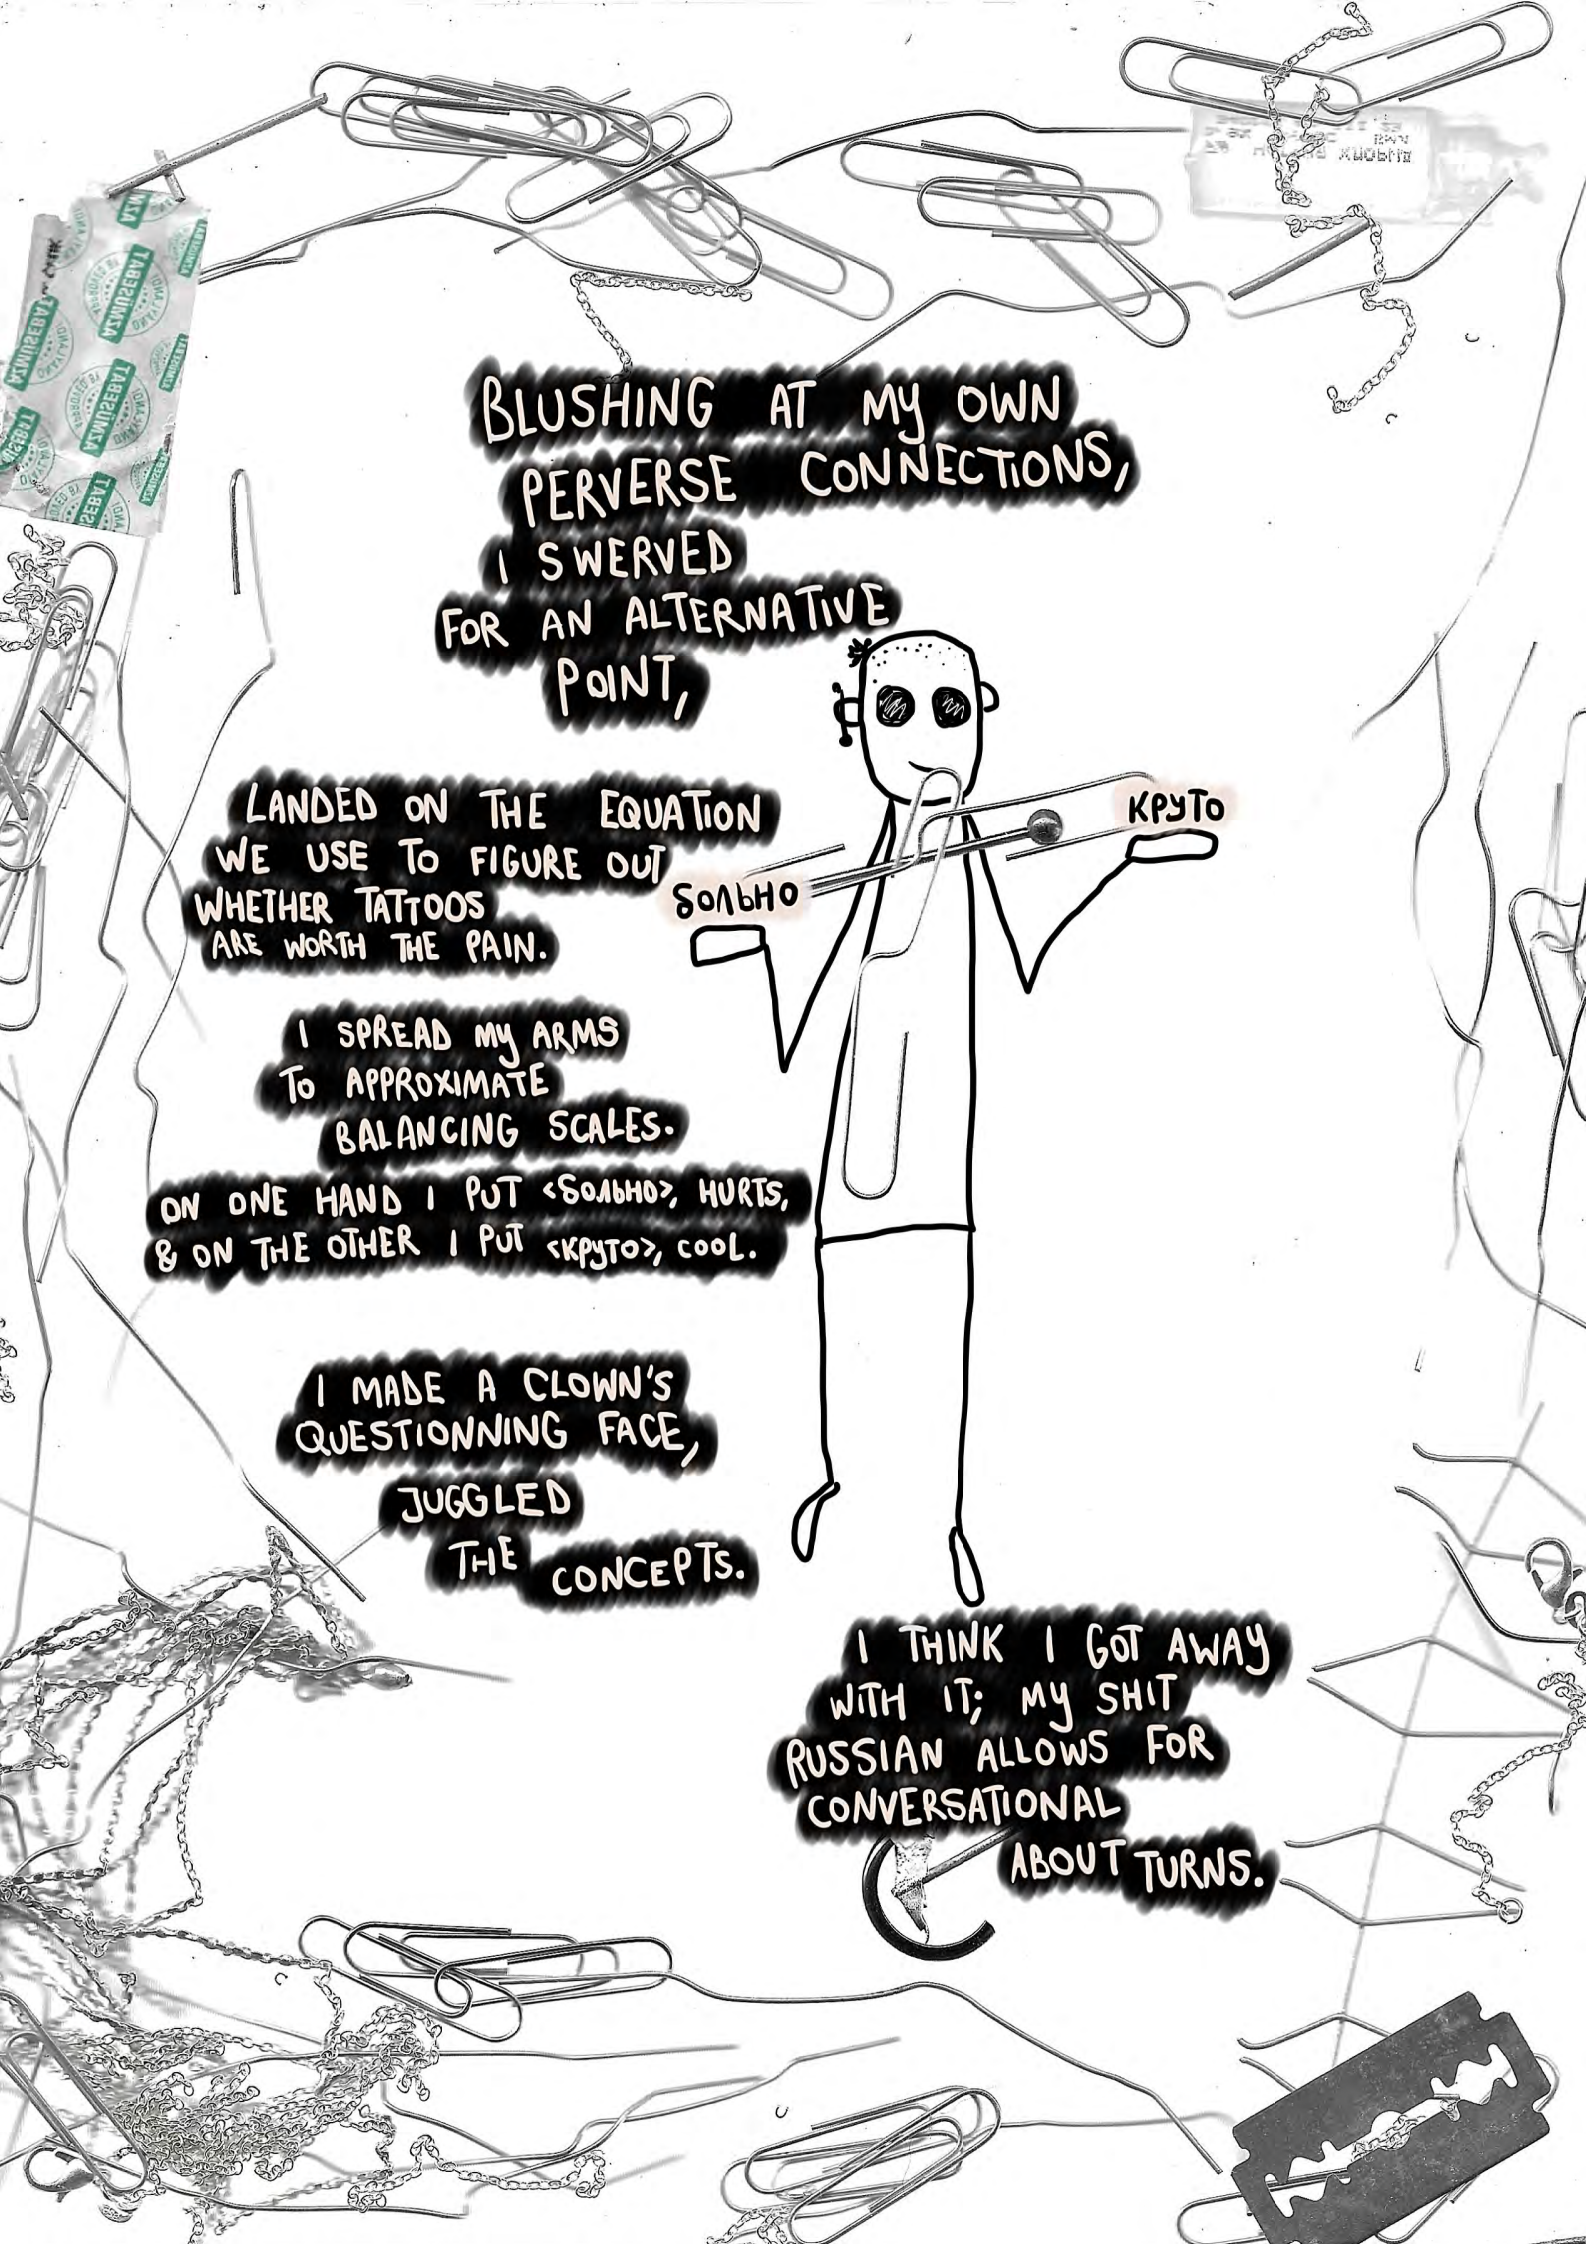 BLUSHING AT MY OWN
PERVERSE CONNECTIONS,
I SWERVED
FOR AN ALTERNATIVE
POINT,
LANDED ON THE EQUATION
WE USE TO FIGURE OUT
WHETHER TATTOOS
ARE WORTH THE PAIN.
больно
круто
I SPREAD MY ARMS
TO APPROXIMATE
BALANCING SCALES.
ON ONE HAND I PUT <больно>, HURTS,
& ON THE OTHER I PUT <круто>, COOL.
I MADE A CLOWN'S
QUESTIONNING FACE,
JUGGLED
THE CONCEPTS.
I THINK I GOT AWAY
WITH IT; MY SHIT
RUSSIAN ALLOWS FOR
CONVERSATIONAL
ABOUT TURNS.